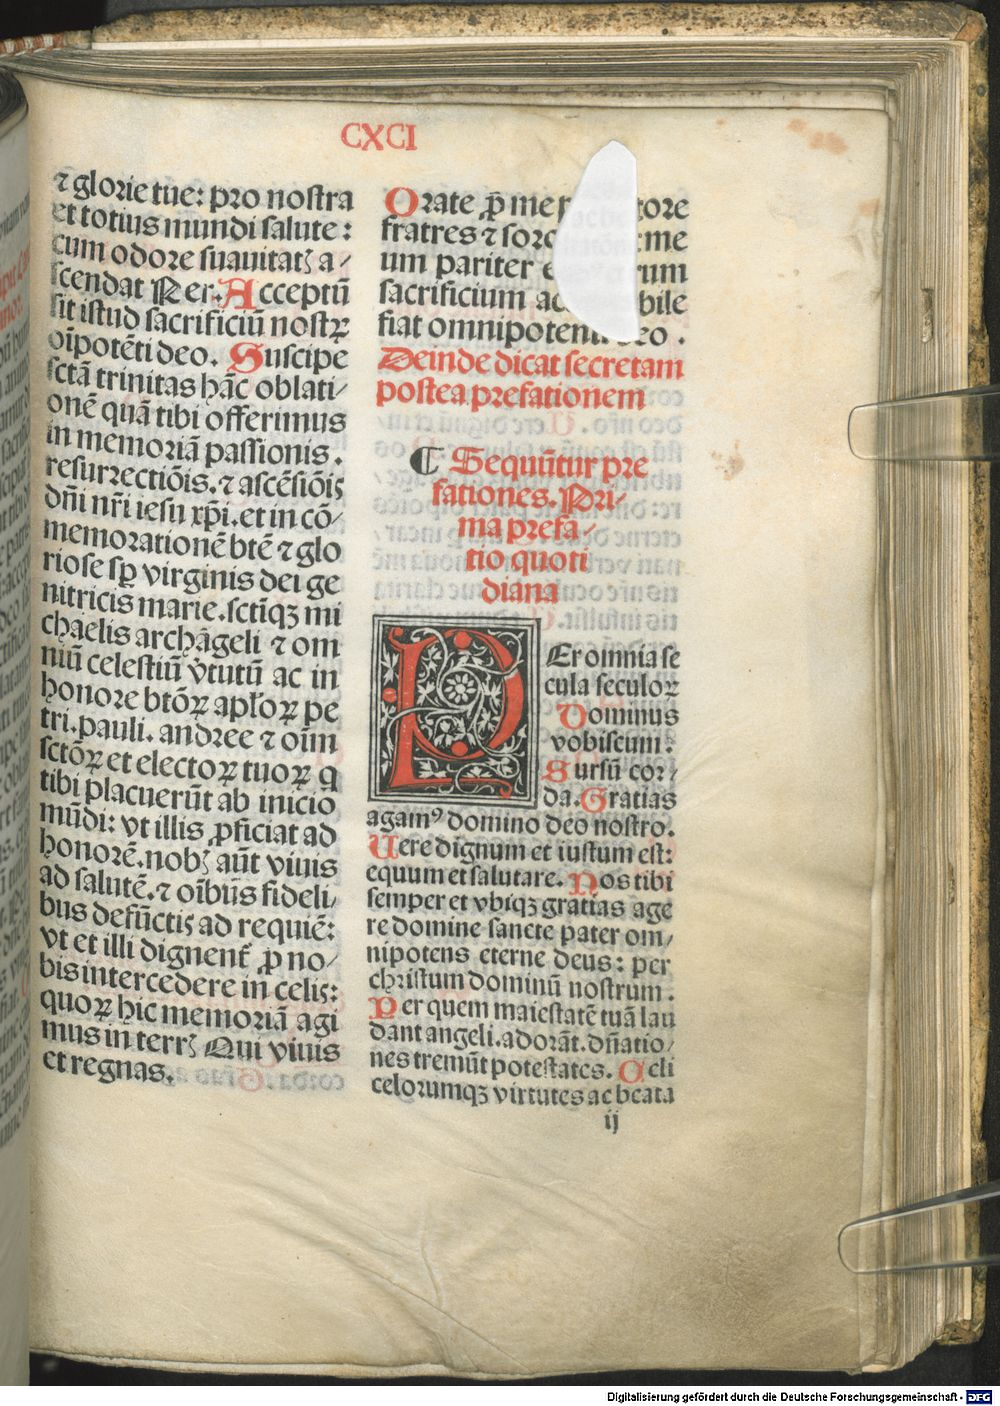 CXCI
⁊ glorie tue: pro nostra
et totius mundi salute:
cum odore suauitatꝫ a/
scendat Per. Acceptū
sit istud sacrificiū nostꝝ
oīpotēti deo. Suscipe
sctā trinitas hāc oblati/
onē quā tibi offerimus
in memoriā passionis.
resurrectiōis. ⁊ ascēsiōis
dn̄i nr̄i iesu xp̄i. et in cō/
memorationē btē ⁊ glo
riose sp̄ virginis dei ge
nitricis marie. sctiqꝫ mi
chaelis archāgeli ⁊ om
niū celestiū v̄tutū ac in
honore btōꝝ apl'oꝝ pe
tri. pauli. andree ⁊ oīm
sctōꝝ et electoꝝ tuoꝝ q
tibi placuerūt ab inicio
mūdi: vt illis ꝓficiat ad
honorē. nobꝫ aūt viuis
ad salutē. ⁊ oībus fideli/
bus defūctis ad requiē:
vt et illi dignent᷑ ꝓ no/
bis intercedere in celis:
quoꝝ hic memoriā agi
mus in terrꝫ Qui viuis
et regnas.
Orate p̄ me tore
fratres ⁊ soro :me
um pariter e rum
sacrificium ac bile
fiat omnipotenti deo.
Deinde dicat secretam
postea prefationem
⸿ Sequūtur pre
fationes. Pri/
ma prefa/
tio quoti
diana
PEr omnia se
cula seculoꝝ
Dominus
vobiscum.
Sursū cor/
da. Gratias
agamꝰ domino deo nostro.
Uere dignum et iustum est:
equum et salutare. Nos tibi
semper et vbiqꝫ gratias age
re domine sancte pater om/
nipotens eterne deus: per
christum dominū nostrum.
Per quem maiestatē tuā lau
dant angeli. adorāt. dn̄atio/
nes tremūt potestates. Celi
celorumqꝫ virtutes ac beata
ij
Digitalisierung gefördert durch die Deutsche Forschungsgemeinschaft - DFG